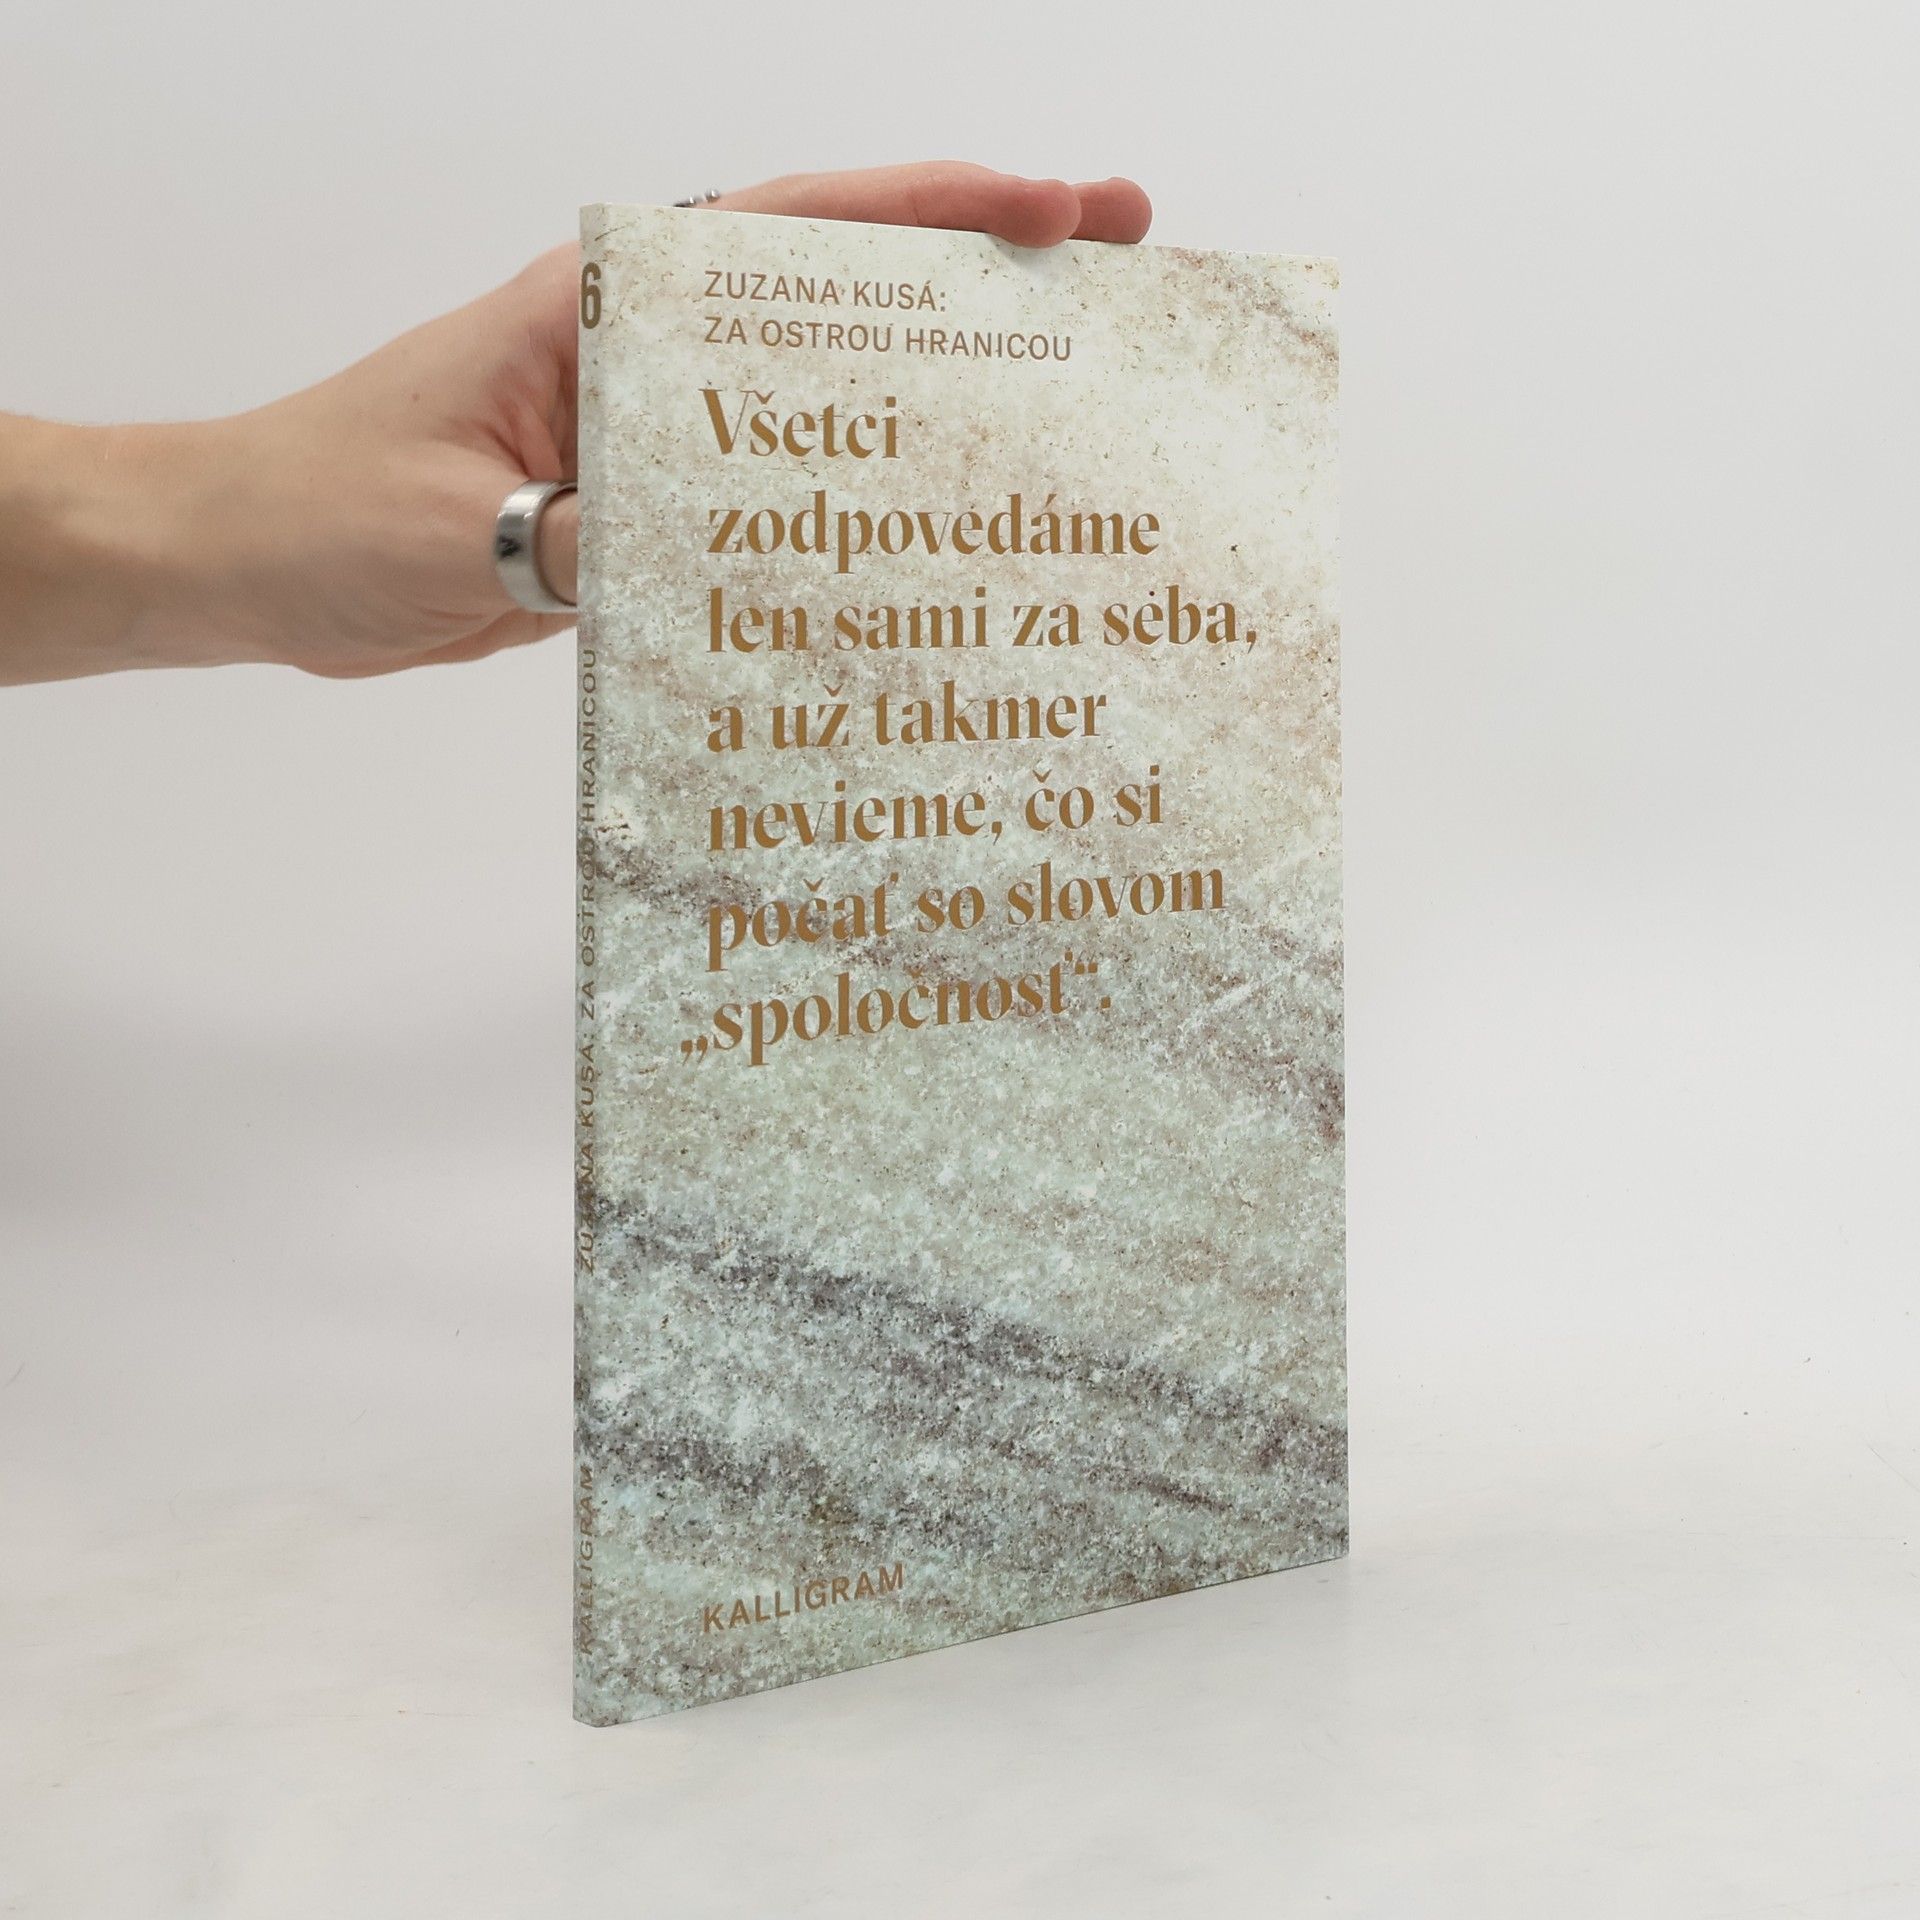 6
ZUZANA KUSÁ: ZA OSTROU HRANICOU
KALLIGRAM
ZUZANA KUSÁ:
ZA OSTROU HRANICOU
Všetci
zodpovedáme
len sami za seba,
a už takmer
nevieme, čo si
počať so slovom
„spoločnosť“.
KALLIGRAM